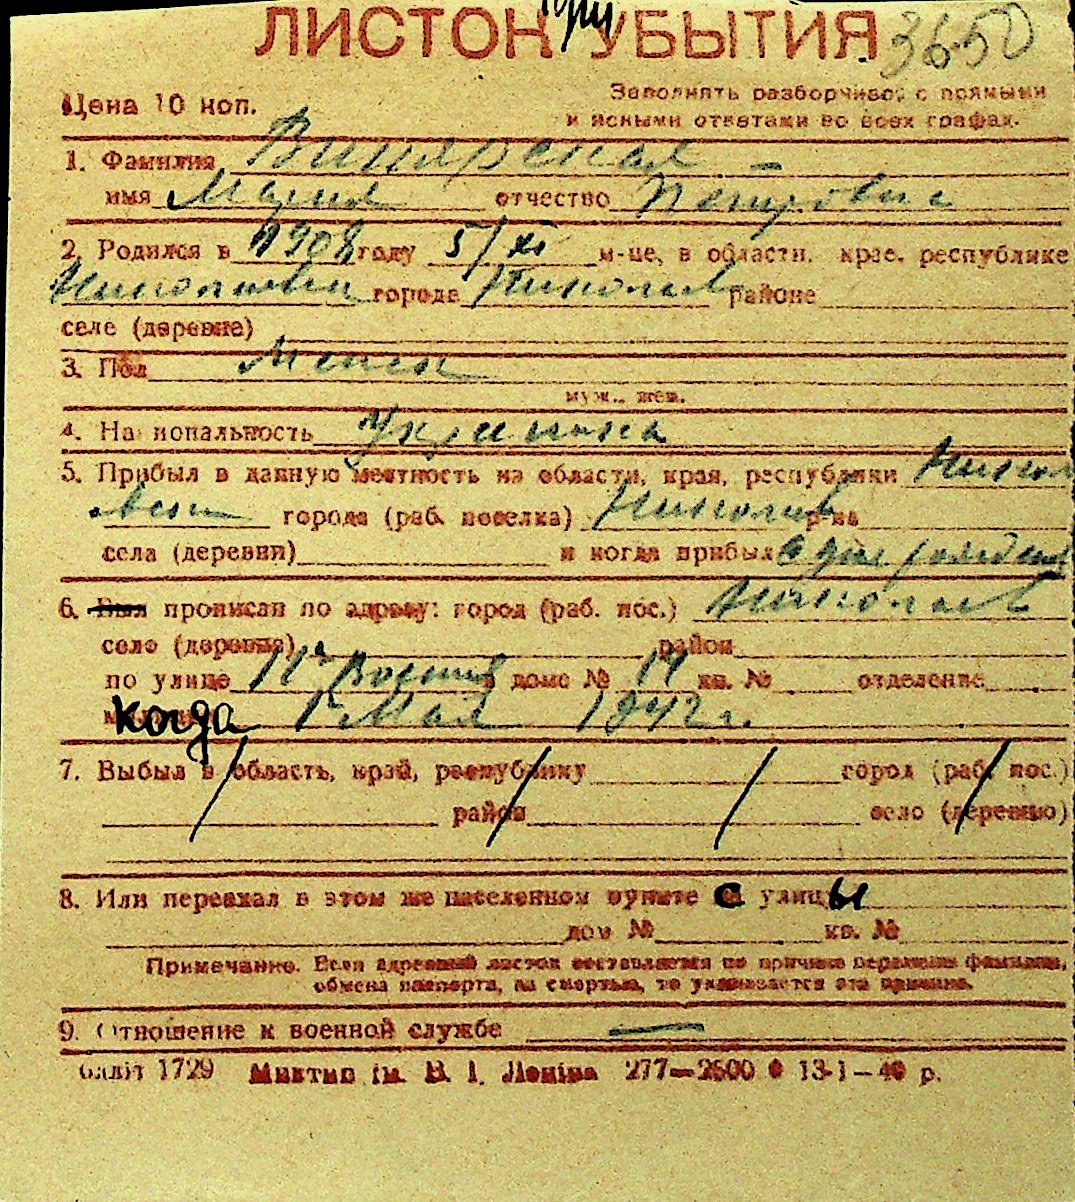 ЛИСТОК при УБЫТИЯ 3650
Цена 10 коп. Заполнять разборчиво, с прямыми
и ясными ответами во всех графах.
1. Фамилия Винярская
имя Мария отчество Петровна
2. Родился в 1908 году 5/XI м-це, в области, крае, республике
Николаевск города Николаев районе
селе (деревне)
3. Пол Женск
муж., жен.
4. Национальность Украинка
5. Прибыл в данную местность из области, края, республики Никола
евск города (раб. поселка) Николаев р-на
села (деревни) и когда прибыл с дня рождения
6. Был прописан по адресу: город (раб. пос.) Николаев
село (деревня) район
по улице Военная в доме № 14 кв. № отделение
когда 1 Мая 1942 г.
7. Выбыл в область, край, республику город (раб. пос.)
район село (деревню)
8. Или переехал в этом же населенном пункте с улицы
дом № кв. №
Примечание. Если адресный листок составляется по причине перемены фамилии,
обмена паспорта, за смертью, то указывается эта причина.
9. Отношение к военной службе —
облліт 1729 Миктип ім. В. І. Леніна 277—2600 13-1—40 р.